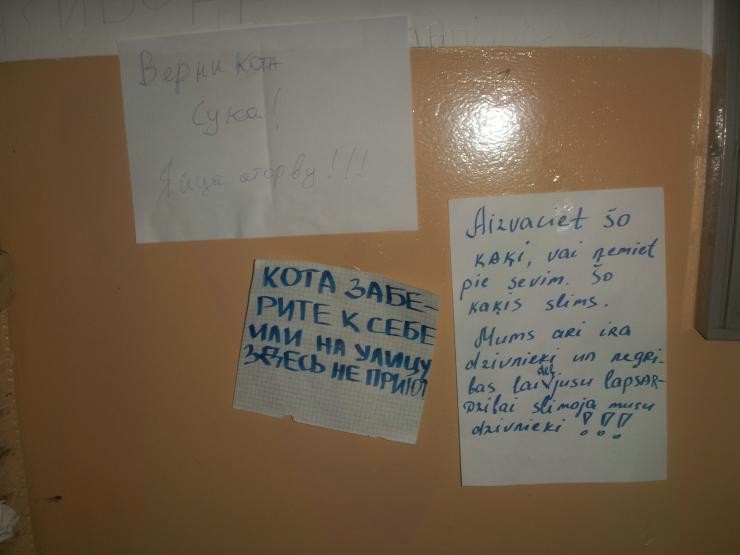 Верни Кота
Сука!
Яйца оторву!!!
КОТА ЗАБЕ-
РИТЕ К СЕБЕ
ИЛИ НА УЛИЦУ
ЗДЕСЬ НЕ ПРИЮТ
Aizvaciet šo
ķaķi, vai ņemiet
pie sevim. Šo
kaķis slims.
Mums ari ira
dzivnieki un negri-
bas lai dēļ jusu lapsar-
Dzibai slimoja musu
dzivnieki !!!